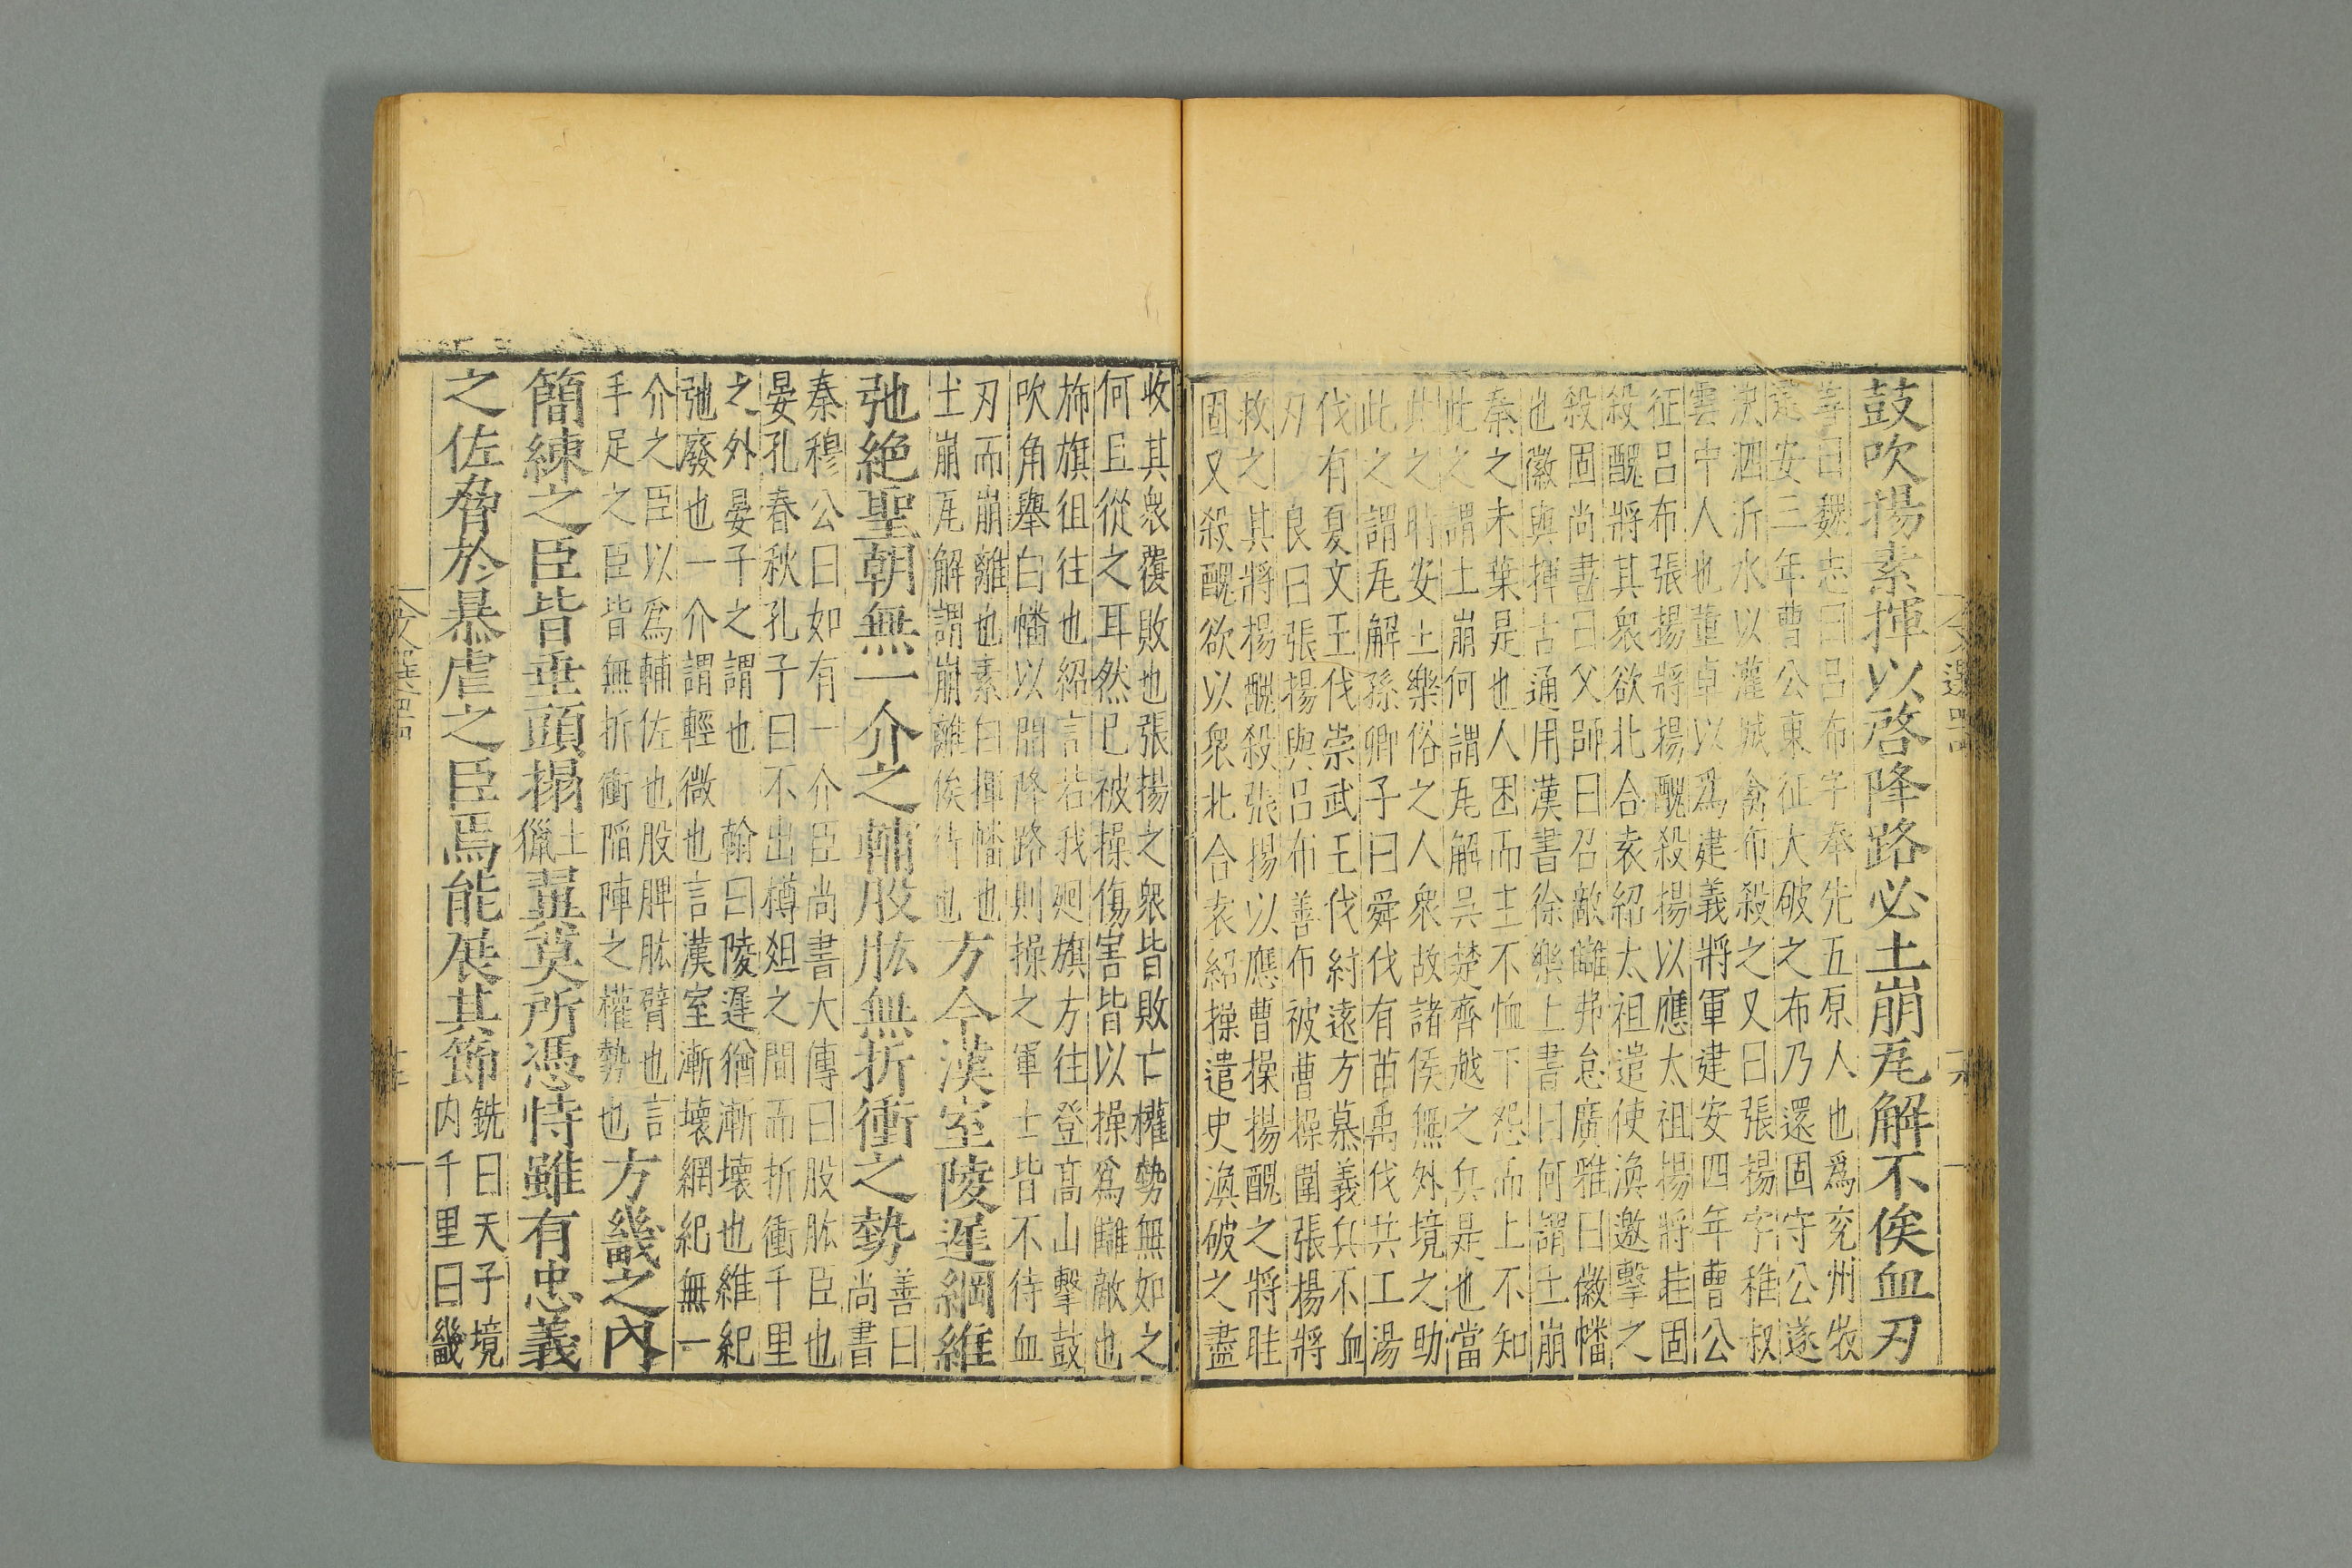 鼓吹揚素揮以啓降路必土崩瓦解不俟血刃
善曰魏志曰呂布字奉先五原人也爲兗州牧
建安三年曹公東征大破之布乃還固守公遂
決泗沂水以灌城禽布殺之又曰張揚字稚叔
雲中人也董卓以爲建義將軍建安四年曹公
征呂布張揚將揚醜殺揚以應太祖揚將眭固
殺醜將其衆欲北合袁紹太祖遣使渙邀擊之
殺固尚書曰父師曰召敵讎弗怠廣雅曰徽幡
也徽與揮古通用漢書徐樂上書曰何謂土崩
秦之末葉是也人困而主不恤下怨而上不知
此之謂土崩何謂瓦解吳楚齊越之兵是也當
此之時安土樂俗之人衆故諸侯無外境之助
此之謂瓦解孫卿子曰舜伐有苗禹伐共工湯
伐有夏文王伐崇武王伐紂遠方慕義兵不血
刃 良曰張揚與呂布善布被曹操圍張揚將
救之其將揚醜殺張揚以應曹操揚醜之將眭
固又殺醜欲以衆北合袁紹操遣史渙破之盡
收其衆覆敗也張揚之衆皆敗亡權勢無如之
何且從之耳然已被操傷害皆以操爲讎敵也
斾旗徂往也紹言若我廻旗方往登高山擊鼓
吹角舉白幡以開降路則操之軍士皆不待血
刃而崩離也素白揮幡也
土崩瓦解謂崩離俟待也
方今漢室陵遲綱維
弛絶聖朝無一介之輔股肱無折衝之勢
善曰
尚書
秦穆公曰如有一介臣尚書大傳曰股肱臣也
晏孔春秋孔子曰不出樽俎之間而折衝千里
之外晏子之謂也 翰曰陵遲猶漸壞也維紀
弛廢也一介謂輕微也言漢室漸壞網紀無一
介之臣以爲輔佐也股脾肱臂也言
手足之臣皆無折衝陷陣之權勢也
方畿之內
簡練之臣皆垂頭搨
土
獵
翼莫所憑恃雖有忠義
之佐脅於暴虐之臣焉能展其節
銑曰天子境
内千里曰畿